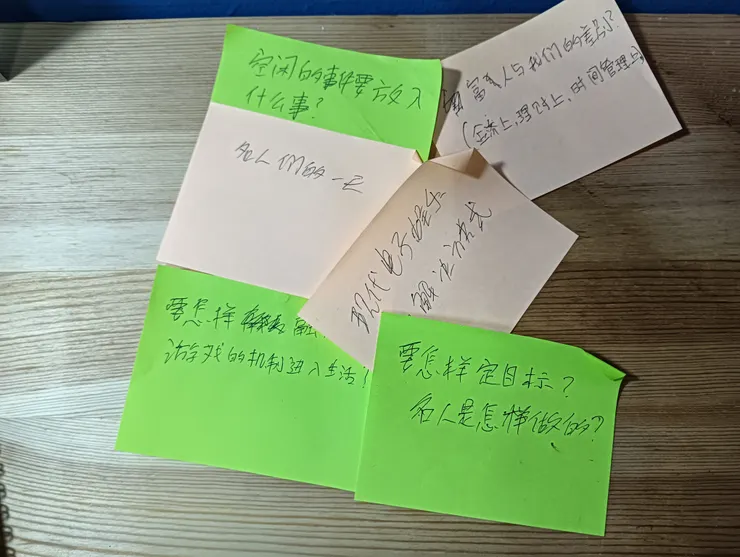 空闲的事件要放入
什么事?
富人与我们的差别?
(金钱上,理财上,时间管理上)
名人们的一天
现代电子娱乐
融法方式
要怎样融
活游戏的机制进入生活!
要怎样定目标?
名人是怎样做的?